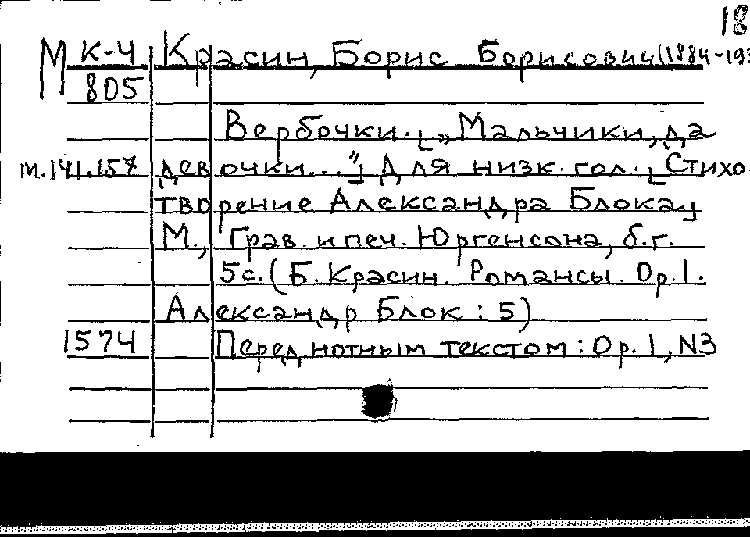 18
М К-4 Красин, Борис Борисович (1884-193
805
Вербочки. [„Мальчики, да
т.141.157 девочки..."] Для низк. гол. [Стихо
творение Александра Блока]
М., Грав. и печ. Юргенсона, б.г.
5с. (Б. Красин. Романсы. Ор. 1.
Александр Блок : 5)
1574 Перед нотным текстом: Ор. 1, N3